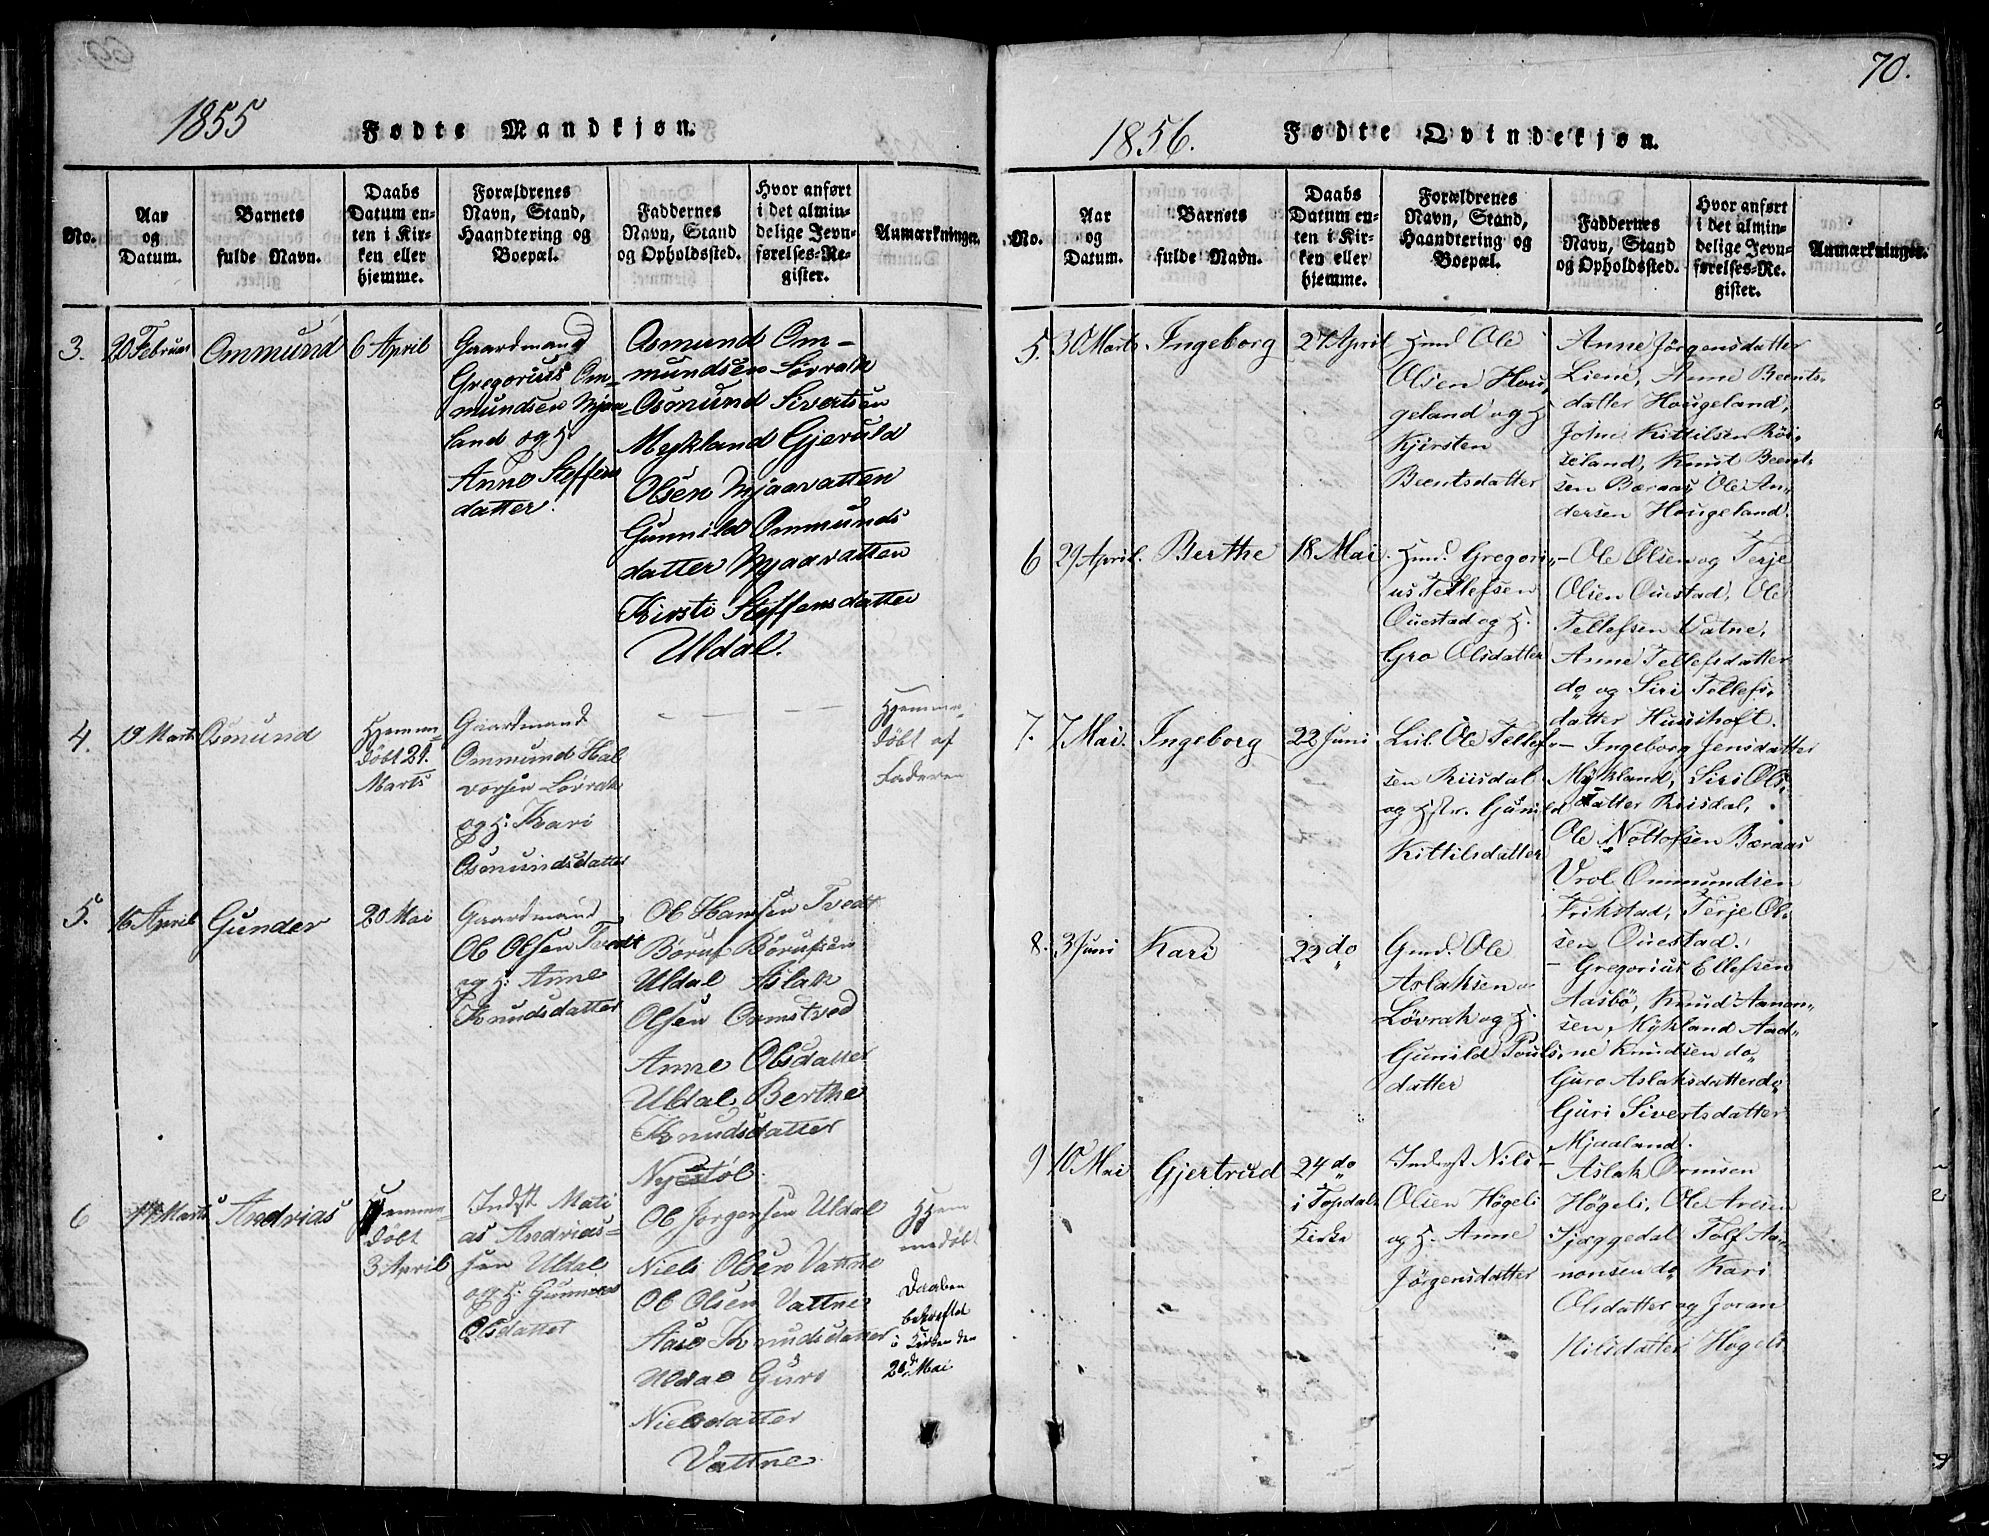 1855
Fødte Mandkjøn.
No.
Aar
og
Datum.
Barnets
fulde Navn.
Daabs
Datum en-
ten i Kir-
ken eller
hjemme.
Forældrenes
Navn, Stand,
Haandtering og
Boepæl.
Faddernes
Navn, Stand
og Opholdssted.
Hvor anført
i det almin-
delige Jevn-
førelses-Re-
gister.
Anmærkninger.
3.
20 Februar
Ommund
6 April
Gaardmand
Gregorius Om-
mundsen Mjaa-
land og H.
Anne Steffens
datter.
Osmund Om-
mundsen Lovrak
Osmund Sivertsen
Mykland Gjeruld
Olsen Mjaavatten
Gunnild Ommunds
datter Mjaavatten
Kirsti Steffensdatter
Uldal.
4.
19 Marts
Osmund
Hjemme-
døbt 21.
Marts
Gaardmand
Ommund Hal
vorsen Lovrak
og H. Kari
Osmundsdatter
Hjemme-
døbt af
Faderen
5.
16 April
Gunder
20 Mai
Gaardmand
Ole Olsen Tvedt
og H. Anne
Knudsdatter
Ole Hansen Tvedt
Børuf Børufsen
Uldal Aslak
Olsen Ormstved
Anne Olsdatter
Uldal Berthe
Knudsdatter
Nyestøl
6
17 Marts
Andrias
Hjemme-
døbt
3 April
Indst Mati
as Andrias-
sen Uldal
og H. Gunnild
Olsdatter
Ole Jørgensen Uldal
Niels Olsen Vattne
Ole Olsen Vattne
Aase Knudsdatter
Uldal Guro
Nielsdatter
Vattne
Hjem
medøbt
Daaben
bekræftet
i Kirken den
20de Mai
70.
1856.
Fødte Qvindekjøn.
No.
Aar
og
Datum.
Barnets
fulde Navn.
Daabs
Datum en-
ten i Kir-
ken eller
hjemme.
Forældrenes
Navn, Stand,
Haandtering og
Boepæl.
Faddernes
Navn, Stand
og Opholdssted.
Hvor anført
i det almin-
delige Jevn-
førelses-Re-
gister.
Anmærkninger.
5.
30 Marts
Ingeborg
27 April
Hmd Ole
Olsen Hou-
geland og H
Kjersten
Beentsdatter
Anne Jörgensdatter
Liene, Anne Beents-
datter Hougeland,
John Kittilsen Röi-
seland, Knut Beent-
sen Beraas, Ole An-
dersen Hougeland.
6
29 April.
Berthe
18 Mai.
Hmd. Gregori-
us Tellefsen
Ouestad og H.
Gro Olsdatter
- Ole Olsen og Terje
Olsen Ouestad, Ole
Tellefsen Vatne,
Anne Tellefsdatter
do og Siri Tellefs-
datter Huushoft.
7.
7 Mai.
Ingeborg
22 Juni
Leil. Ole Tellef-
sen Riisdal
og Hstr. Gunild
Kittilsdatter
- Ingeborg Jensdatter
Mykland, Siri Ols-
datter Riisdal,
Ole Nottofsen Beraas
Vrol Ommundsen
Frikstad, Terje Ol-
sen Ouestad.
8.
3 Juni
Kari
22 do
Gmd. Ole
Aslaksen
Lövrak og H.
Gunild Pouls-
datter
- Gregorius Ellefsen
Aasbö, Knud Aanon-
sen, Mykland Aad-
ne Knudsen do
Guro Aslaksdatter do
Guri Sivertsdatter
Mjaaland.
9
10 Mai
Gjertrud
24 do
i Topdals
Kirke
Inderst Nils
Olsen Högeli
og H. Anne
Jörgensdatter
- Aslak Ormsen
Högeli, Ole Aresen
Sjæggedal Tolf Aa-
nonsen do Kari
Olsdatter og Joran
Nilsdatter Hogeli